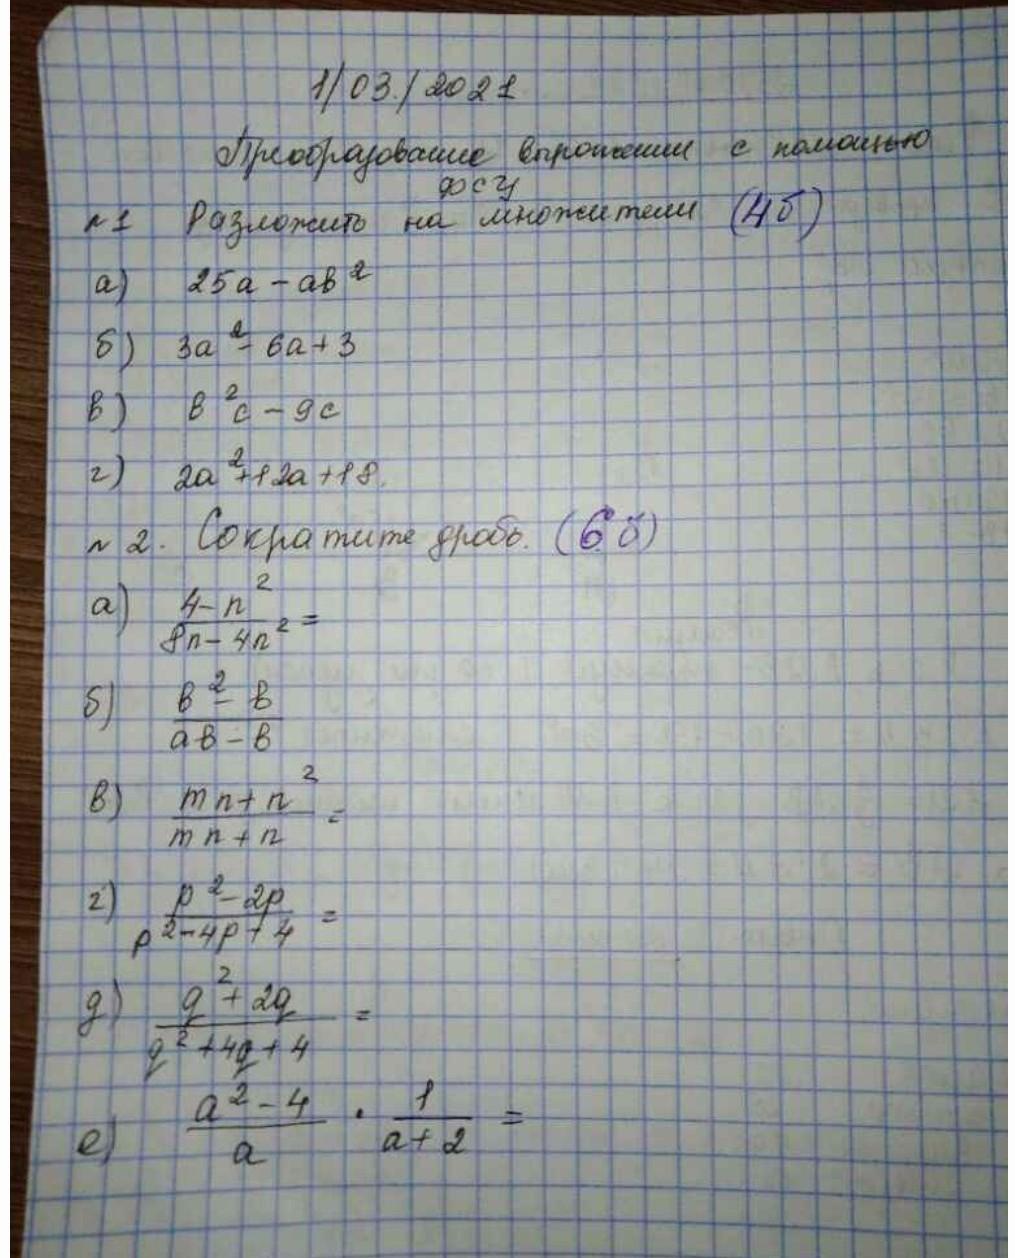 1/03./2021
Преобразование выражений с помощью
ФСУ
№1 Разложить на множители (4б)
а) 25a - ab²
б) 3a² - 6a + 3
в) b²c - 9c
г) 2a² + 12a + 18.
№ 2. Сократите дробь. (6 б)
а) (4 - n²)/(8n - 4n²) =
б) (b² - b)/(ab - b)
в) (mn + n²)/(mn + n) =
г) (p² - 2p)/(p² - 4p + 4) =
д) (q² + 2q)/(q² + 4q + 4) =
е) (a² - 4)/a · 1/(a + 2) =